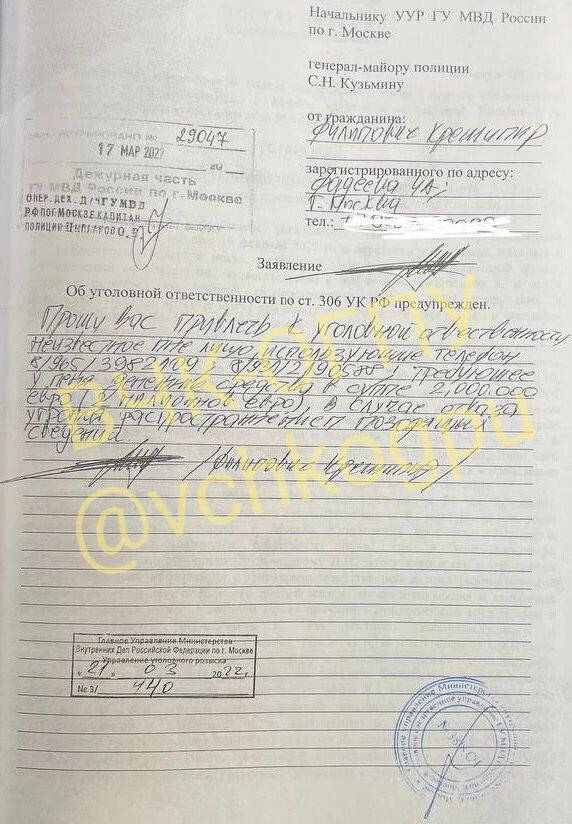 Начальнику УУР ГУ МВД России
по г. Москве
генерал-майору полиции
С.Н. Кузьмину
от гражданина:
Филипович Крешимир
зарегистрированного по адресу:
Фадеева 4А,
г. Москва
тел.:
ЗАРЕГИСТРИРОВАНО № 29047
17 МАР 2022
Дежурная часть
ГУ МВД России по г. Москве
ОПЕР. ДЕЖ. Д/Ч ГУ МВД
РФ ПО Г. МОСКВЕ КАПИТАН
ПОЛИЦИИ
Заявление
Об уголовной ответственности по ст. 306 УК РФ предупрежден.
Прошу вас привлечь к уголовной ответственности
неизвестное мне лицо использующие телефон
8/965/3982109;
требующее
у меня денежные средства в сумме 2,000.000
евро (2 миллионов евро), в случае отказа
угрожая распространением позорящих
сведений
/Филипович Крешимир/
ВЧК-ОГПУ
@vchkogpu
Главное Управление Министерства
Внутренних Дел Российской Федерации по г. Москве
Управление уголовного розыска
"21" 03 2022г.
№ 3/ 440